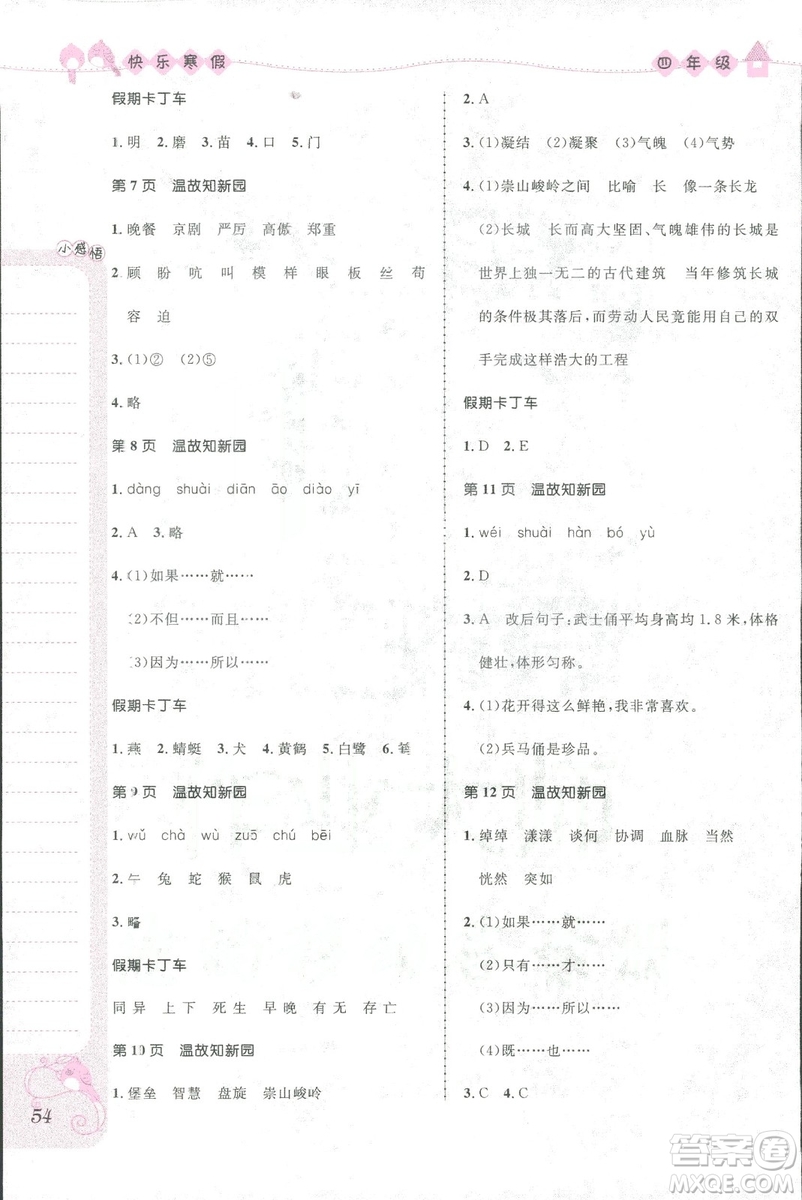 快乐寒假
四年级
小感悟
假期卡丁车
1.明 2.磨 3.苗 4.口 5.门
第7页 温故知新园
1.晚餐 京剧 严厉 高傲 郑重
2.顾 盼 吭 叫 模 样 眼 板 丝 苟
容 迫
3.(1)② (2)⑤
4.略
第8页 温故知新园
1.dàng shuài diān āo diào yī
2.A 3.略
4.(1)如果……就……
(2)不但……而且……
(3)因为……所以……
假期卡丁车
1.燕 2.蜻蜓 3.犬 4.黄鹤 5.白鹭 6.
第9页 温故知新园
1.wǔ chà wù zuō chú bēi
2.牛 兔 蛇 猴 鼠 虎
3.略
假期卡丁车
同异 上下 死生 早晚 有无 存亡
第10页 温故知新园
1.堡垒 智慧 盘旋 崇山峻岭
2.A
3.(1)凝结 (2)凝聚 (3)气魄 (4)气势
4.(1)崇山峻岭之间 比喻 长 像一条长龙
(2)长城 长而高大坚固、气魄雄伟的长城是
世界上独一无二的古代建筑 当年修筑长城
的条件极其落后,而劳动人民竟能用自己的双
手完成这样浩大的工程
假期卡丁车
1.D 2.E
第11页 温故知新园
1.wéi shuài hàn bó yù
2.D
3.A 改后句子:武士俑平均身高均1.8米,体格
健壮,体形匀称。
4.(1)花开得这么鲜艳,我非常喜欢。
(2)兵马俑是珍品。
第12页 温故知新园
1.绰绰 漾漾 谈何 协调 血脉 当然
恍然 突如
2.(1)如果……就……
(2)只有……才……
(3)因为……所以……
(4)既……也……
3.C 4.C
54
答案圈
MXQE.COM